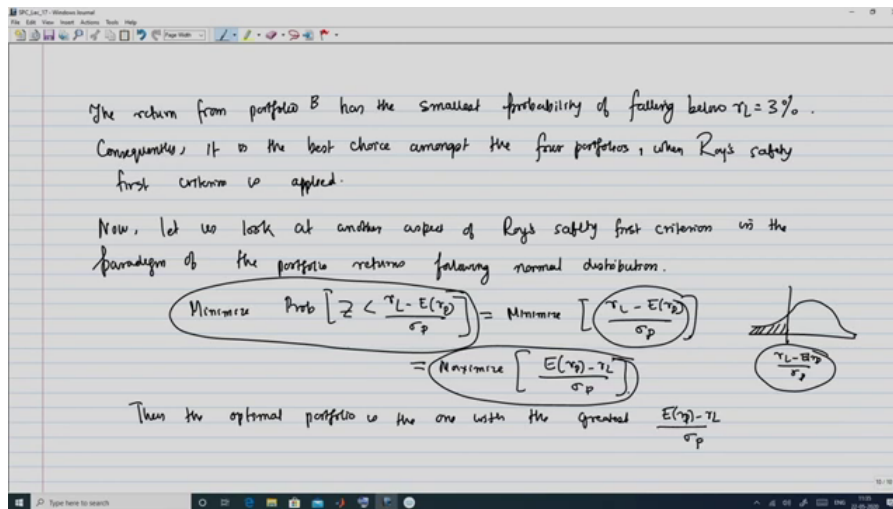 SPC_Lec_17 - Windows Journal
File Edit View Insert Actions Tools Help
Page Width
The return from portfolio B has the smallest probability of falling below r_L = 3%.
Consequently, it is the best choice amongst the four portfolios, when Roy's safety
first criterion is applied.
Now, let us look at another aspect of Roy's safety first criterion in the
paradigm of the portfolio returns following normal distribution.
Minimize Prob [Z < (r_L - E(r_p)) / σ_p] = Minimize [(r_L - E(r_p)) / σ_p]
(r_L - E(r_p)) / σ_p
= Maximize [(E(r_p) - r_L) / σ_p]
Then the optimal portfolio is the one with the greatest (E(r_p) - r_L) / σ_p
Type here to search
ENG
22-05-2020